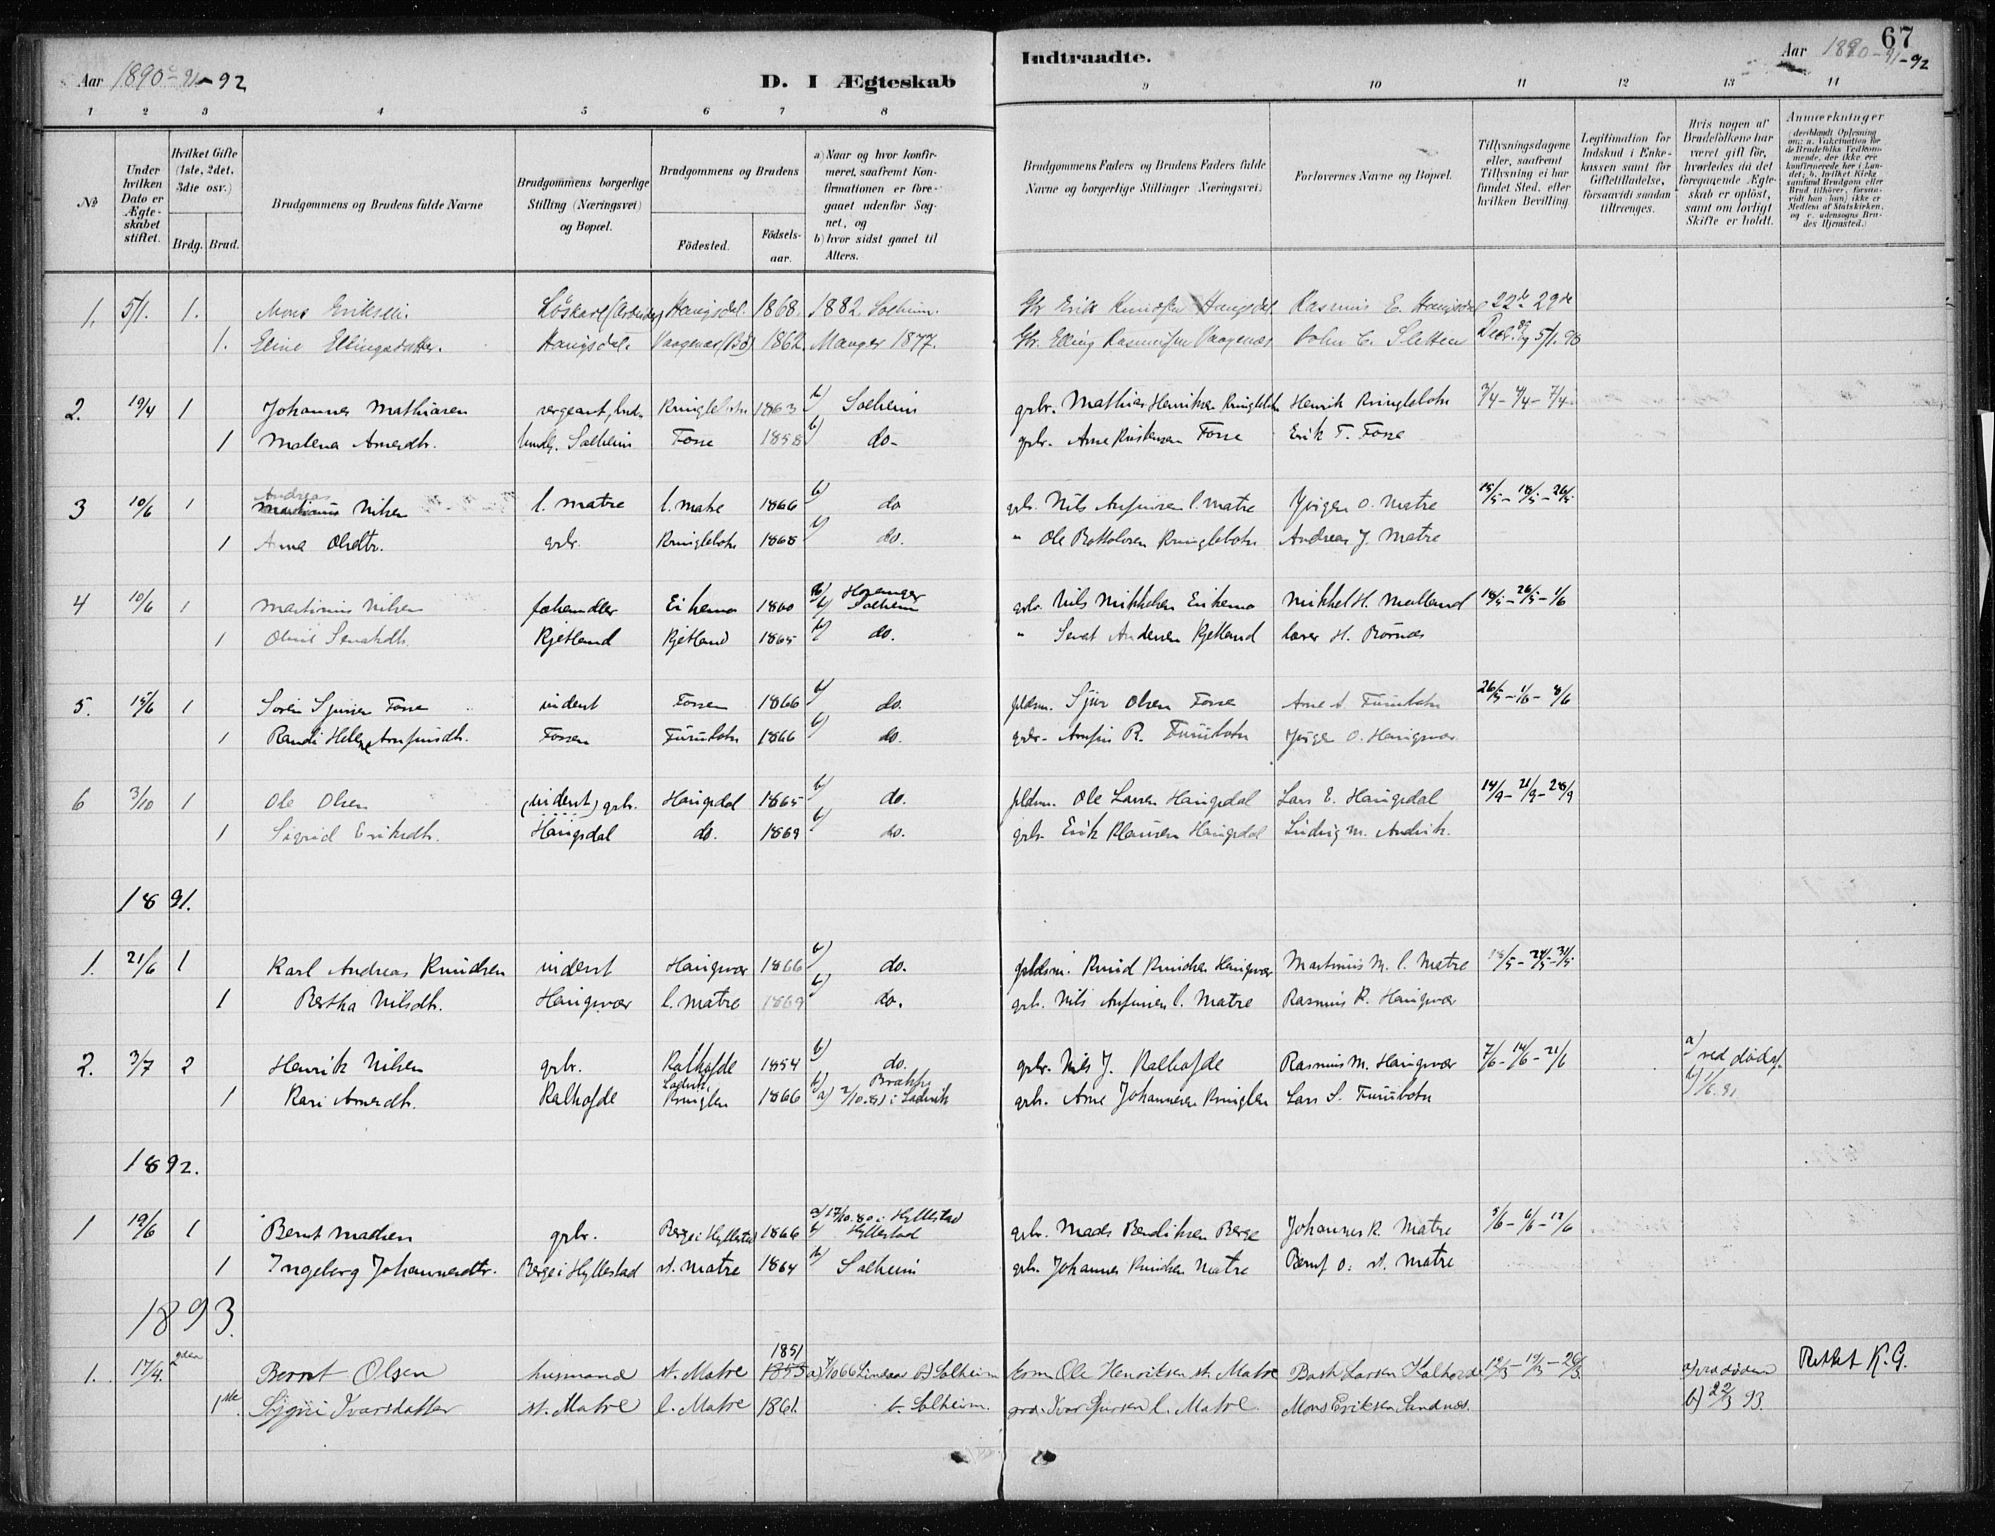 67
Aar 1890-91-92
D. I Ægteskab
Indtraadte.
Aar 1890-91-92
1 2 3 4 5 6 7 8 9 10 11 12 13 14
No
Under hvilken Dato er Ægteskabet stiftet.
Hvilket Gifte (1ste, 2det, 3die osv.)
Brdg. Brud.
Brudgommens og Brudens fulde Navne
Brudgommens borgerlige Stilling (Næringsvei) og Bopæl.
Brudgommens og Brudens
Födested.
Födselsaar.
a) Naar og hvor konfirmeret, saafremt Konfirmationen er foregaaet udenfor Sognet, og
b) hvor sidst gaaet til Alters.
Brudgommens Faders og Brudens Faders fulde Navne og borgerlige Stillinger (Næringsvei)
Forlovernes Navne og Bopæl.
Tillysningsdagene eller, saafremt Tillysning ei har fundet Sted, efter hvilken Bevilling.
Legitimation for Indskud i Enkekassen samt for Giftetilladelse, forsaavidt saadan tiltrænges.
Hvis nogen af Brudefolkene har været gift för, hvorledes da det foregaaende Ægteskab er oplöst, samt om lovligt Skifte er holdt.
Anmærkninger
1. 5/1. 1. Mons Eriksen. Löskarl (Arbeider) Haugsdal. 1868 1882 Solheim. Gbr Erik Knudsen Haugsdal Rasmus E. Haugsdal 22de 29de
1. Eline Ellingsdatter. Haugsdal. Vaagenæs 1862 Manger 1877. Gbr. Elling Rasmussen Vaagenæs John C. Sletten Decbr. 89 5/1.90
2. 19/4 1 Johannes Mathiasen sergeant, Ringlebotn 1863 b) Solheim gbr. Mathias Henriksen Ringlebotn Henrik Ringlebotn 3/4-4/4-7/4
1 Malena Arnesdtr. Solheim Fosse 1858 b) do- gbr. Arne Kristensen Fosse Erik T. Fosse
3 10/6 1 Andreas Nilsen l. Matre l. Matre 1866 b) do gbr. Nils Anfinsen l. Matre O. Matre 15/5-18/5-26/5
1 Anna Olsdtr. gbr. Kringlebotn 1868 b) do. " Ole Bottolvsen Kringlebotn Andreas J. Matre
4 10/6 1 Martinus Nilsen fehandler Eikemo 1860 b) Solheim gbr. Nils Mikkelsen Eikemo Mikkel H. Molland 18/5-26/5-1/6
1 Oline Senatsdtr. Kjetland Kjetland 1865 b) do. " Senat Andersen Kjetland lærer H. Börnæs
5. 15/6 1 Sören Sjursen Fosse inderst Fossen 1866 b) do. pldsm. Sjur Olsen Fosse Arne A. Furubotn 26/5-1/6-8/6
1 Randi Helene Anfinsdtr. Fossen Furubotn 1866 b) do. gbr. Anfin R. Furubotn O. Haugsvær
6 3/10 1 Ole Olsen (inderst) gbr. Haugsdal 1865 b) do. pldsm. Ole Larsen Haugsdal Lars E. Haugsdal 14/9-21/9-28/9
1 Sigrid Eriksdtr. Haugsdal do. 1869 b) do. gbr. Erik Klausen Haugsdal Ludvig M. Andvik.
1891.
1. 21/6 1 Karl Andreas Knudsen inderst Haugsvær 1866 b) do. pldsm. Knud Knudsen Haugsvær Martinus M. l. Matre 18/5-24/5-31/5
1 Bertha Nilsdtr. Haugsvær l. Matre 1869 b) do. gbr. Nils Anfinsen l. Matre Rasmus K. Haugsvær
2. 3/7 2 Henrik Nilsen gbr. Kalhofde 1854 b) do. gbr. Nils J. Kalhofde Rasmus M. Haugsvær 7/6-14/6-21/6 a) ved dödsf.
1 Kari Arnesdtr. Kalhofde Ladvik Kringlen 1866 b) Brække a) 2/10.81 i Ladvik gbr. Arne Johannesen Kringlen Lars S. Furubotn b) 1/6.91
1892.
1 19/6 1 Bernt Madsen gbr. Berge i Hyllestad 1866 a) 17/10.80 i Hyllestad b) Hyllestad gbr. Mads Bendiksen Berge Johannes K. Matre 5/6-6/6-12/6
1 Ingeborg Johannesdtr. Berge i Hyllestad st. Matre 1864 b) Solheim gbr. Johannes Knudsen Matre Bernt O. st. Matre
1893.
1. 17/4. 2den Bernt Olsen husmand st. Matre 1851 1855 a) 7/10 66 Lindaas b) Solheim Ole Henriksen st. Matre Larsen Kalhovde 12/3-19/3-26/3 a) ved döden Rettet K.G.
1ste Sygni Ivarsdatter st. Matre l. Matre 1861. b. Solheim. Ivar Sjursen l. Matre. Mons Eriksen Sundnes. b) 22/3 93.